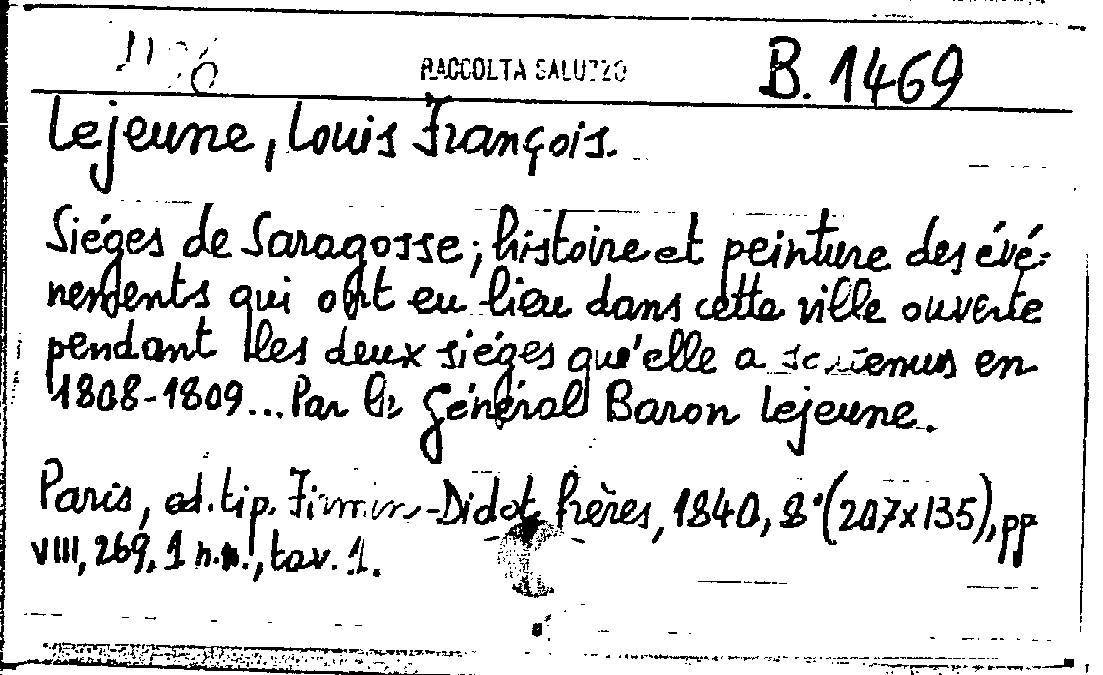 RACCOLTA SALUZZO B. 1469
Lejeune, Louis François.
Siéges de Saragosse; histoire et peinture des évé-
nements qui ont eu lieu dans cette ville ouverte
pendant les deux siéges qu'elle a soutenus en
1808-1809... Par le Général Baron Lejeune.
Paris, ed. tip. Firmin-Didot frères, 1840, 8° (207x135), pp
VIII, 269, 1 n.n., tav. 1.